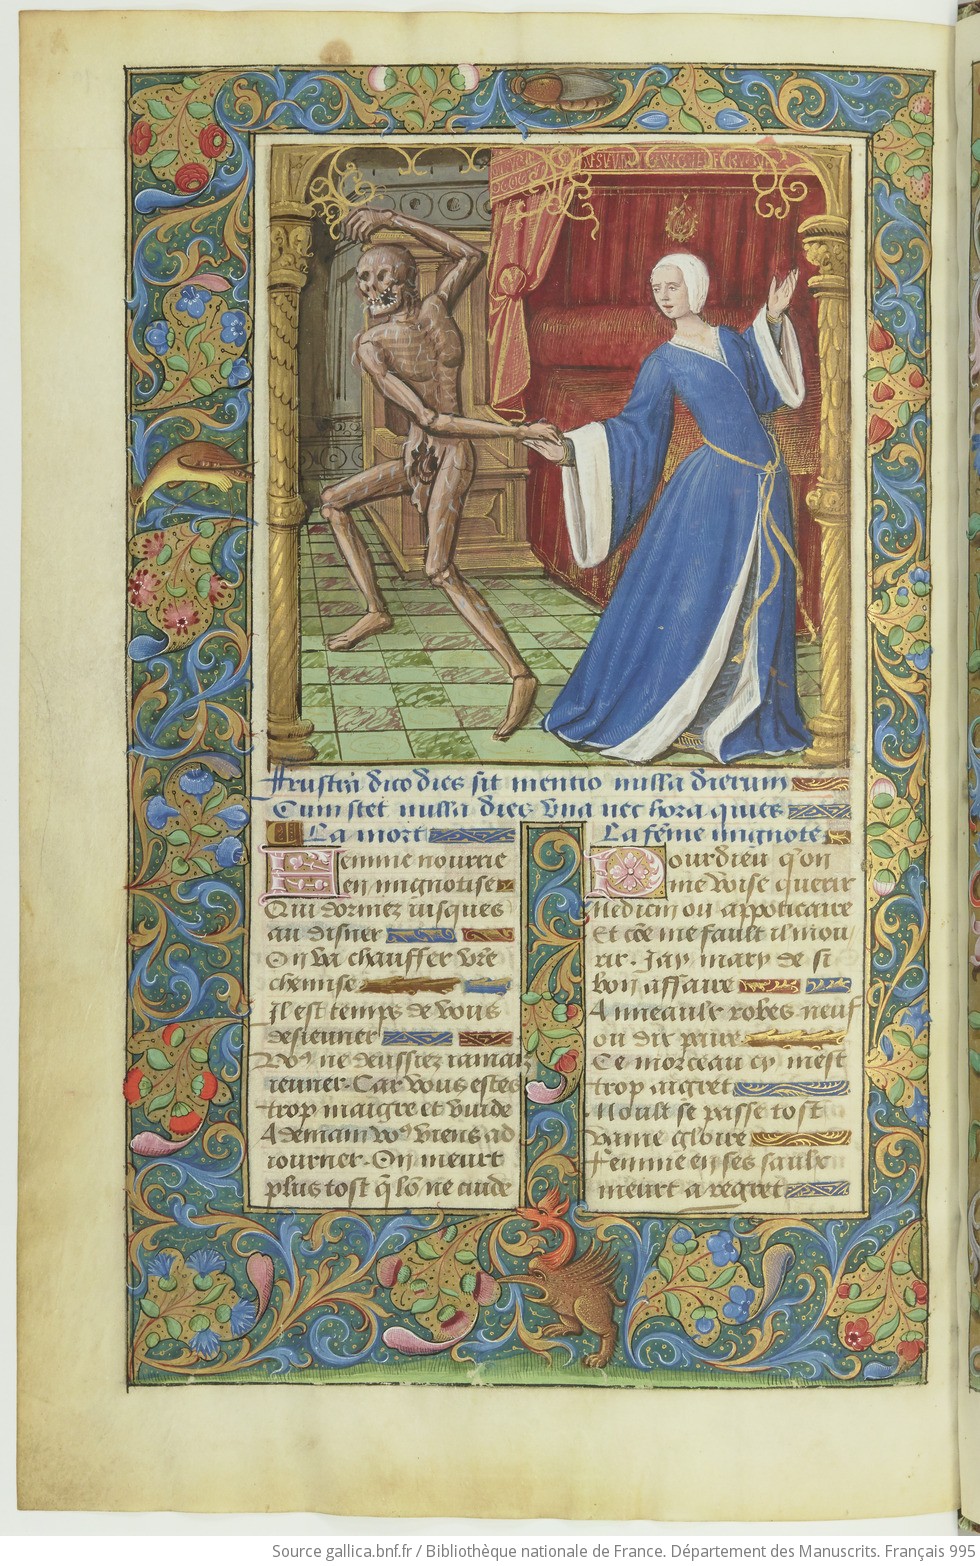 Frustra dico dies sit mentio nulla dierum
Cum stet nulla dies vna nec hora quies
La mort
Femme nourrie
en mignotise
Qui dormez iusques
au disner
On va chauffer vrē
chemise
Il est temps de vous
desieuner
Vo9 ne deussiez iamais
ieuner. Car vous estes
trop maigre et vuide
A demain vo9 viens ad
iourner. On meurt
plus tost q̄ lō ne cuide
La fēme mignote
Pour dieu q'on
me voise querir
Medicin ou appoticaire
Et cōe me fault il mou
rir. Jay mary de si
bon affaire
Anneaulx robes neuf
ou dix paire
Ce morceau cy m'est
trop aigret
Moult se passe tost
vaine gloire
Femme en ses saulx
meurt a regret
Source gallica.bnf.fr / Bibliothèque nationale de France. Département des Manuscrits. Français 995